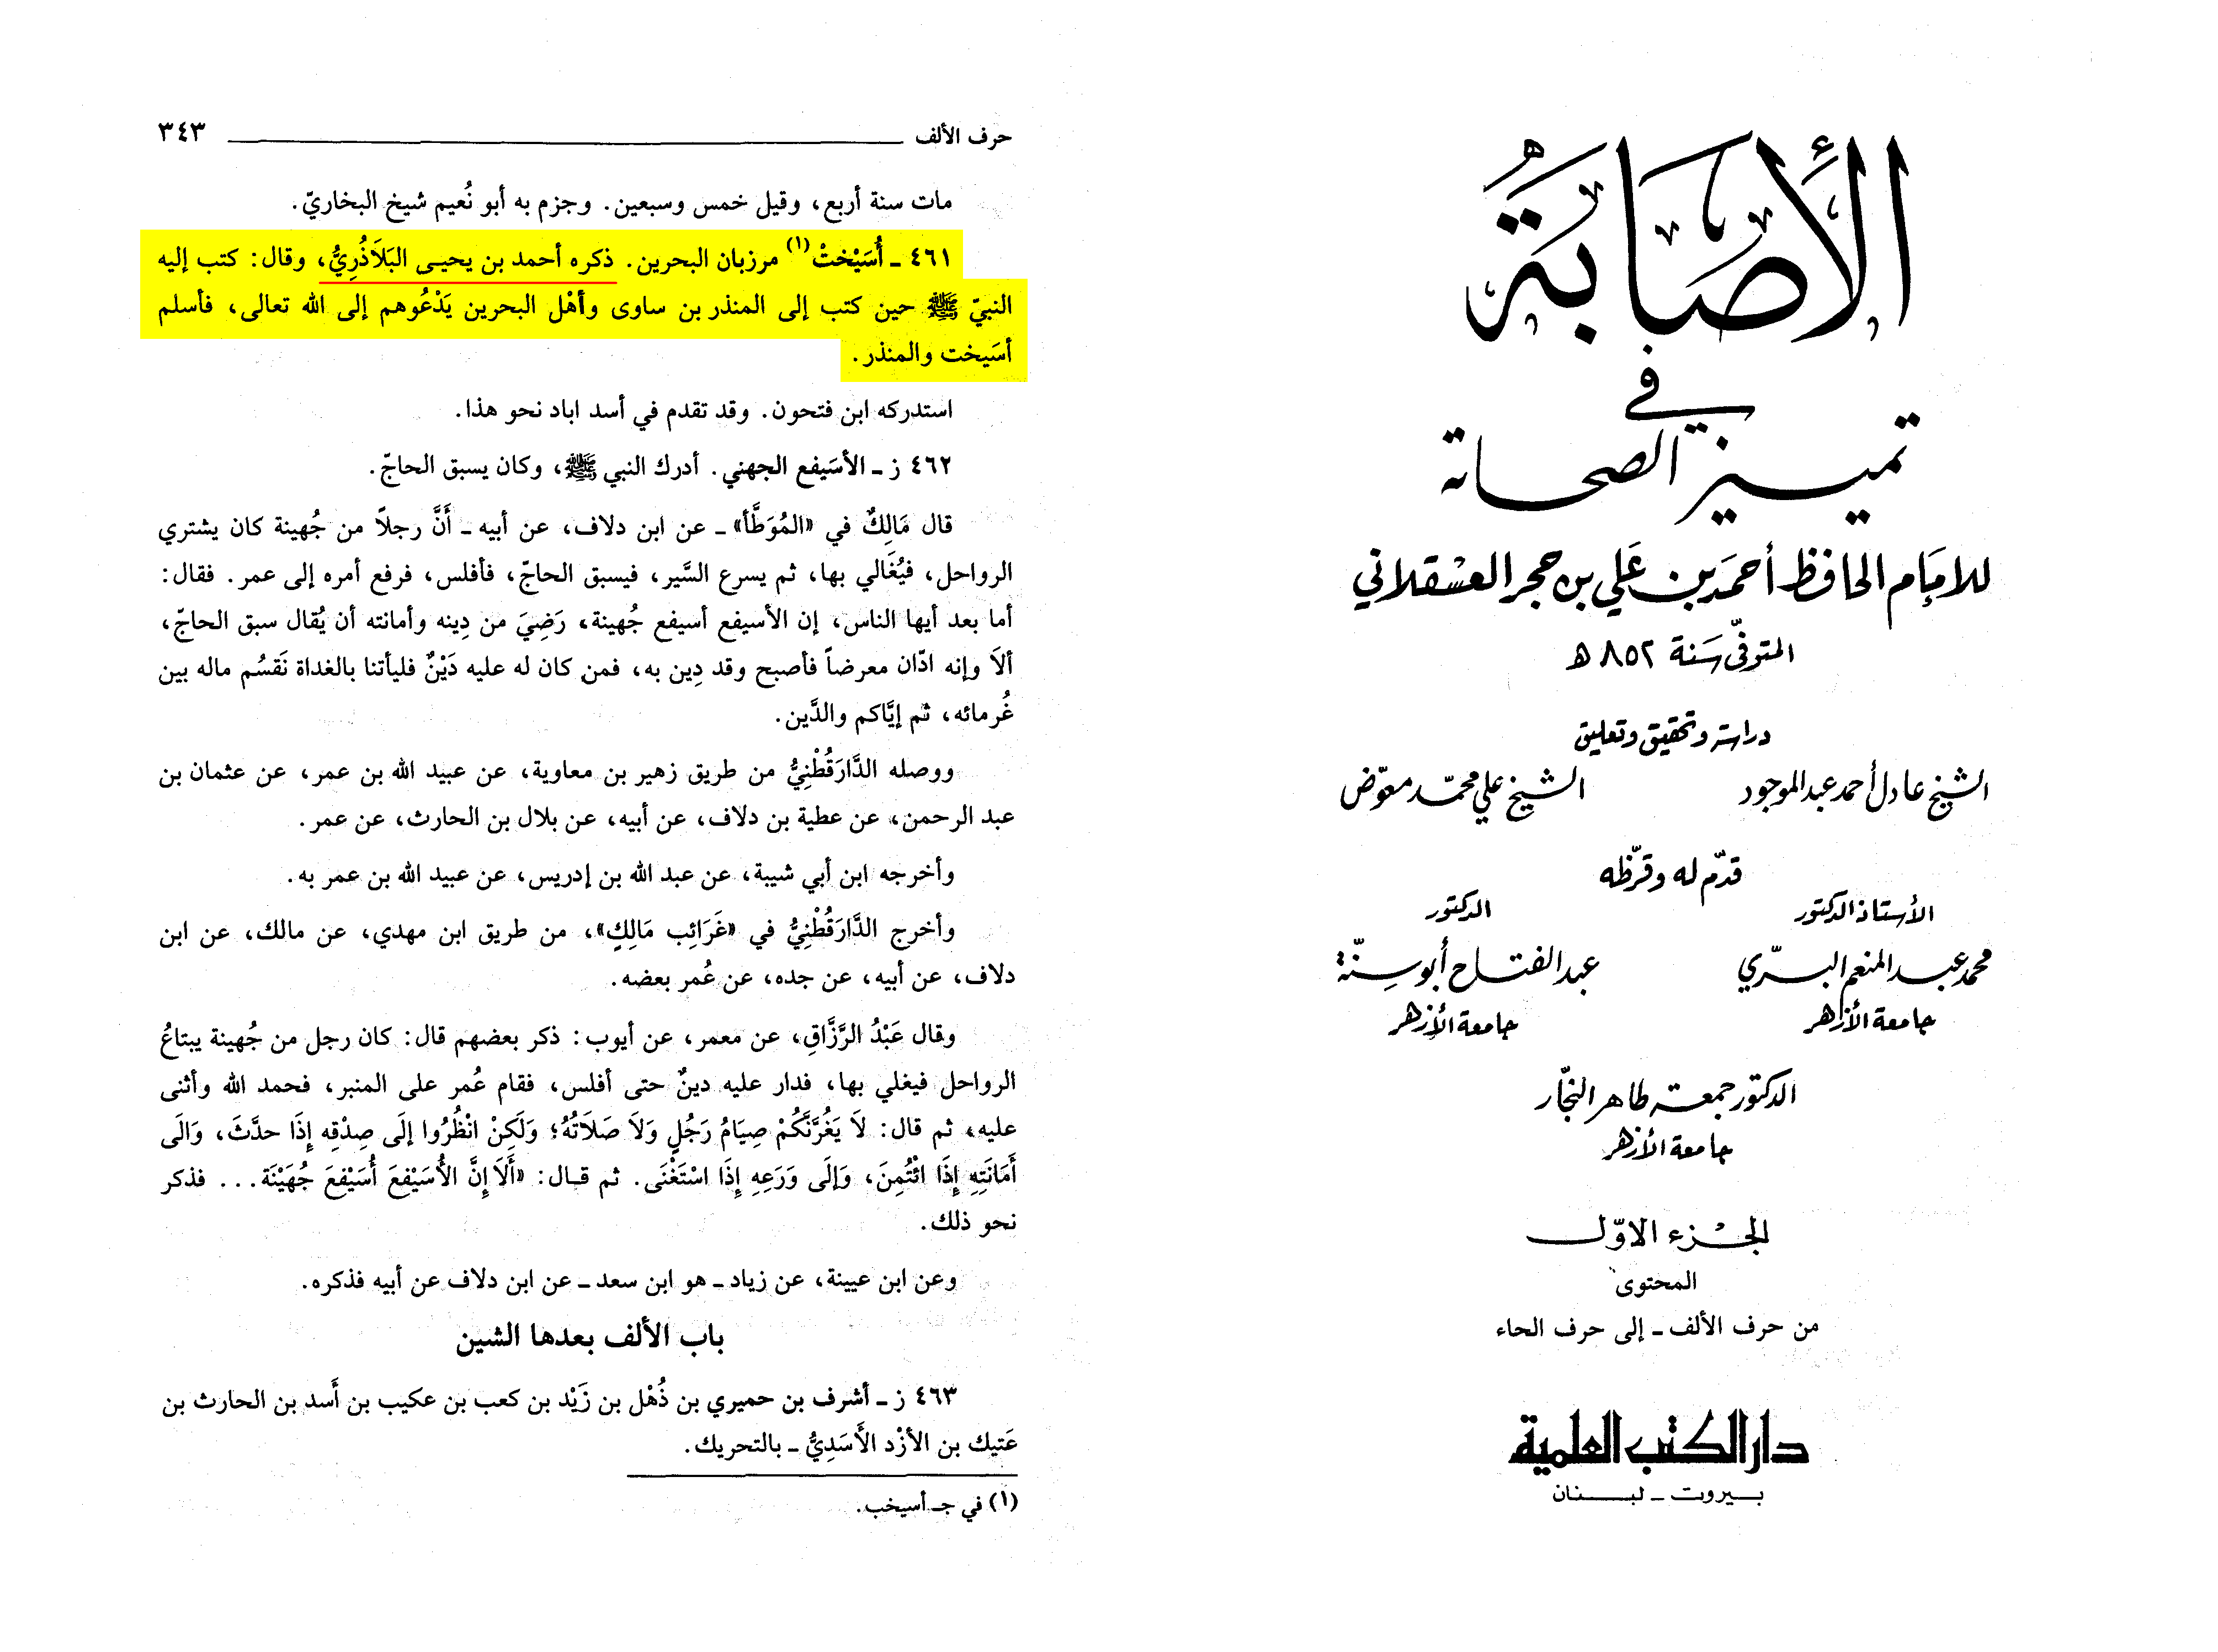 الإصابة
في
تمييز الصحابة
للإمام الحافظ أحمد بن علي بن حجر العسقلاني
المتوفى سنة ٨٥٢ هـ
دراسة وتحقيق وتعليق
الشيخ عادل أحمد عبد الموجود الشيخ علي محمد معوض
قدم له وقرظه
الأستاذ الدكتور
محمد عبد المنعم البري
جامعة الأزهر
الدكتور
عبد الفتاح أبو سنة
جامعة الأزهر
الدكتور جمعة طاهر النجار
جامعة الأزهر
الجزء الأول
المحتوى
من حرف الألف ـ إلى حرف الحاء
دار الكتب العلمية
بيروت ـ لبنان
حرف الألف ٣٤٣
مات سنة أربع، وقيل خمس وسبعين. وجزم به أبو نُعيم شيخ البخاريّ.
٤٦١ ـ أُسَيْختْ(١) مرزبان البحرين. ذكره أحمد بن يحيى البَلَاذُرِيُّ، وقال: كتب إليه
النبيّ ﷺ حين كتب إلى المنذر بن ساوى وأهْل البحرين يَدْعُوهم إلى الله تعالى، فأسلم
أسَيخت والمنذر.
استدركه ابن فتحون. وقد تقدم في أسد اباد نحو هذا.
٤٦٢ ز ـ الأسَيفع الجهني. أدرك النبي ﷺ، وكان يسبق الحاجّ.
قال مَالِكٌ في «المُوَطَّأ» ـ عن ابن دلاف، عن أبيه ـ أَنَّ رجلاً من جُهينة كان يشتري
الرواحل، فيُغَالي بها، ثم يسرع السَّير، فيسبق الحاجّ، فأفلس، فرفع أمره إلى عمر. فقال:
أما بعد أيها الناس، إن الأسيفع أسيفع جُهينة، رَضِيَ من دِينه وأمانته أن يُقال سبق الحاجّ،
ألاَ وإنه ادّان معرضاً فأصبح وقد دِين به، فمن كان له عليه دَيْنٌ فليأتنا بالغداة نَقسُم ماله بين
غُرمائه، ثم إيَّاكم والدَّين.
ووصله الدَّارَقُطْنِيُّ من طريق زهير بن معاوية، عن عبيد الله بن عمر، عن عثمان بن
عبد الرحمن، عن عطية بن دلاف، عن أبيه، عن بلال بن الحارث، عن عمر.
وأخرجه ابن أبي شيبة، عن عبد الله بن إدريس، عن عبيد الله بن عمر به.
وأخرج الدَّارَقُطْنِيُّ في «غَرَائِب مَالِكٍ»، من طريق ابن مهدي، عن مالك، عن ابن
دلاف، عن أبيه، عن جده، عن عُمر بعضه.
وقال عَبْدُ الرَّزَّاقِ، عن معمر، عن أيوب: ذكر بعضهم قال: كان رجل من جُهينة يبتاعُ
الرواحل فيغلي بها، فدار عليه دينٌ حتى أفلس، فقام عُمر على المنبر، فحمد الله وأثنى
عليه، ثم قال: لاَ يَغُرَّنَّكُمْ صِيَامُ رَجُلٍ وَلاَ صَلاَتُهُ؛ وَلَكِنْ انْظُرُوا إلَى صِدْقِهِ إِذَا حدَّثَ، وَالَى
أَمَانَتِهِ إِذَا ائْتُمِنَ، وَإِلَى وَرَعِهِ إِذَا اسْتَغْنَى. ثم قـال: «أَلَا إِنَّ الأُسَيْفِعَ أُسَيْفِعَ جُهَيْنَة... فذكر
نحو ذلك.
وعن ابن عيينة، عن زياد ـ هو ابن سعد ـ عن ابن دلاف عن أبيه فذكره.
باب الألف بعدها الشين
٤٦٣ ز ـ أشرف بن حميري بن ذُهْل بن زَيْد بن كعب بن عكيب بن أَسد بن الحارث بن
عَتيك بن الأزْد الأَسَدِيُّ ـ بالتحريك.
(١) في جـ أسيخب.